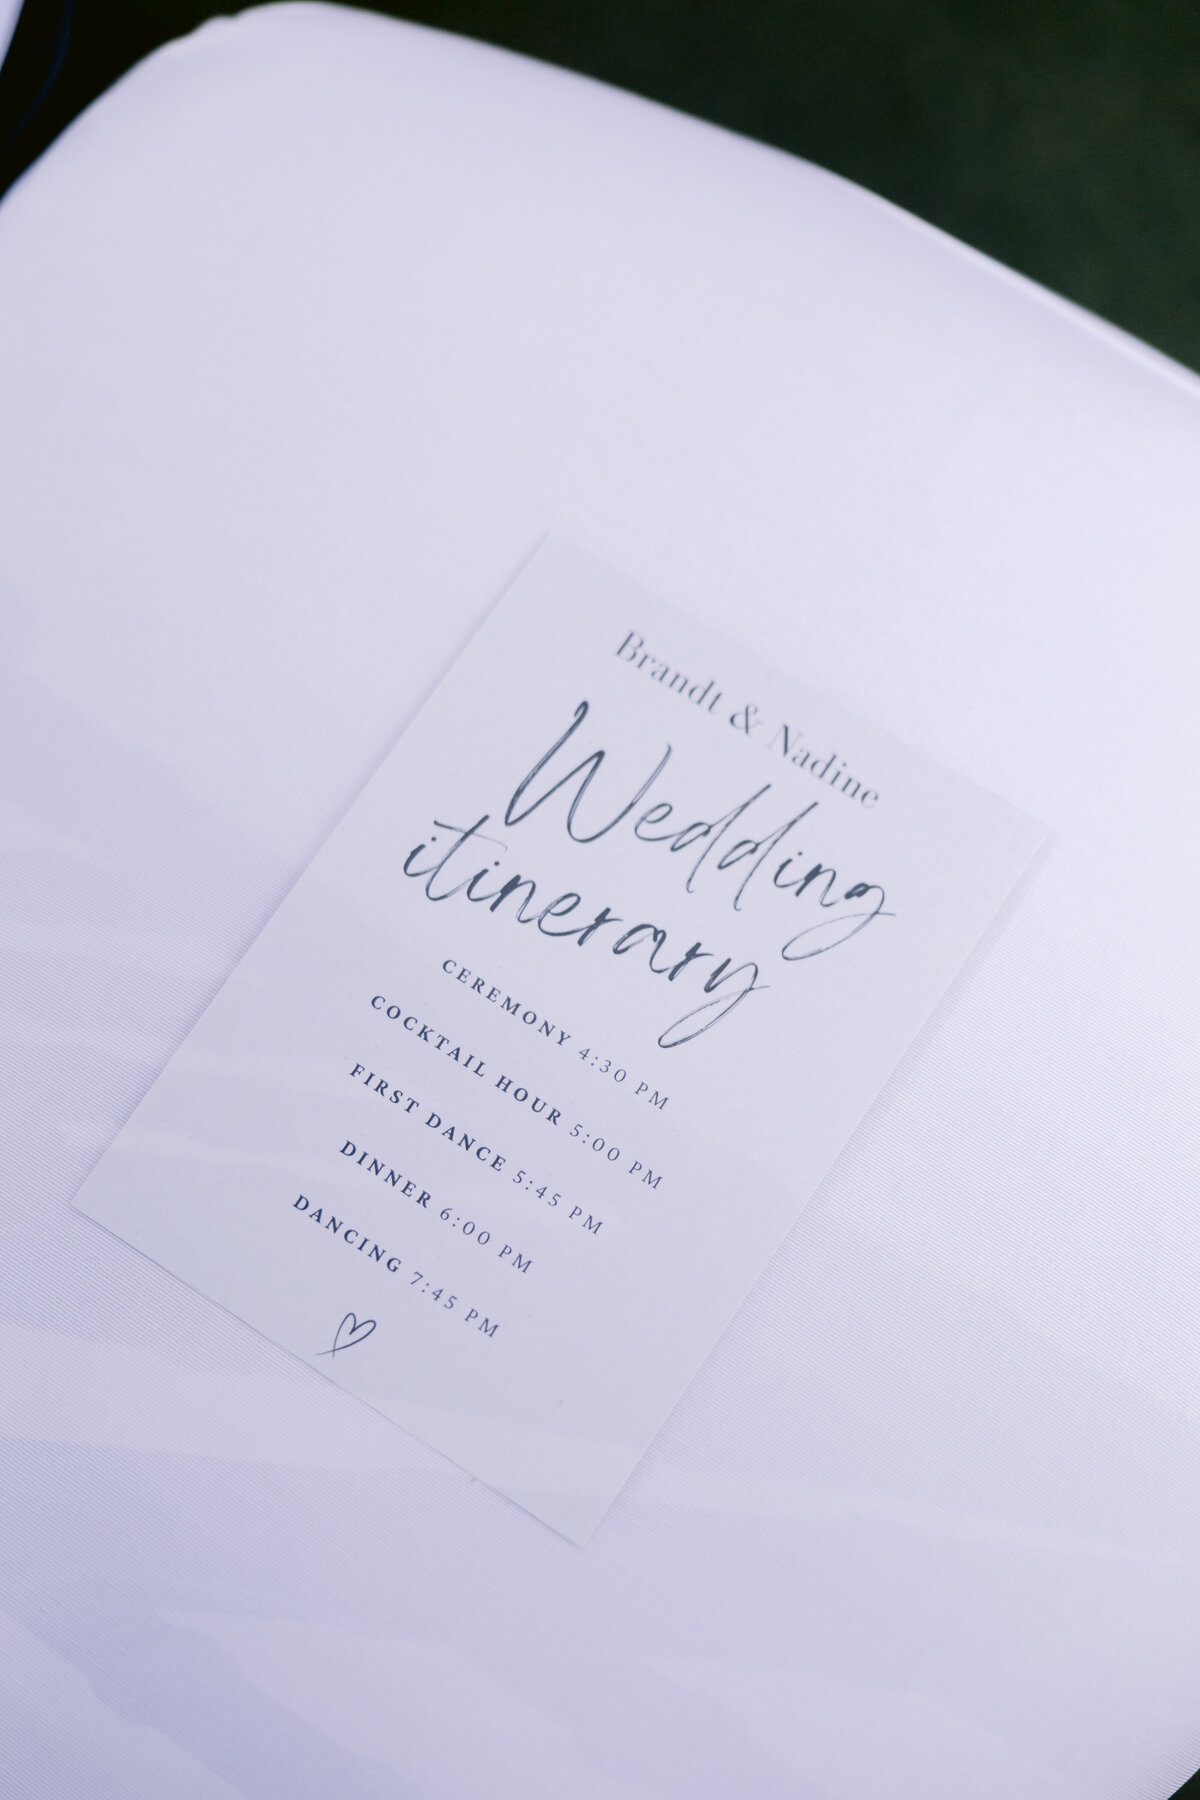 Brandt & Nadine
Wedding
itinerary
CEREMONY 4:30 PM
COCKTAIL HOUR 5:00 PM
FIRST DANCE 5:45 PM
DINNER 6:00 PM
DANCING 7:45 PM